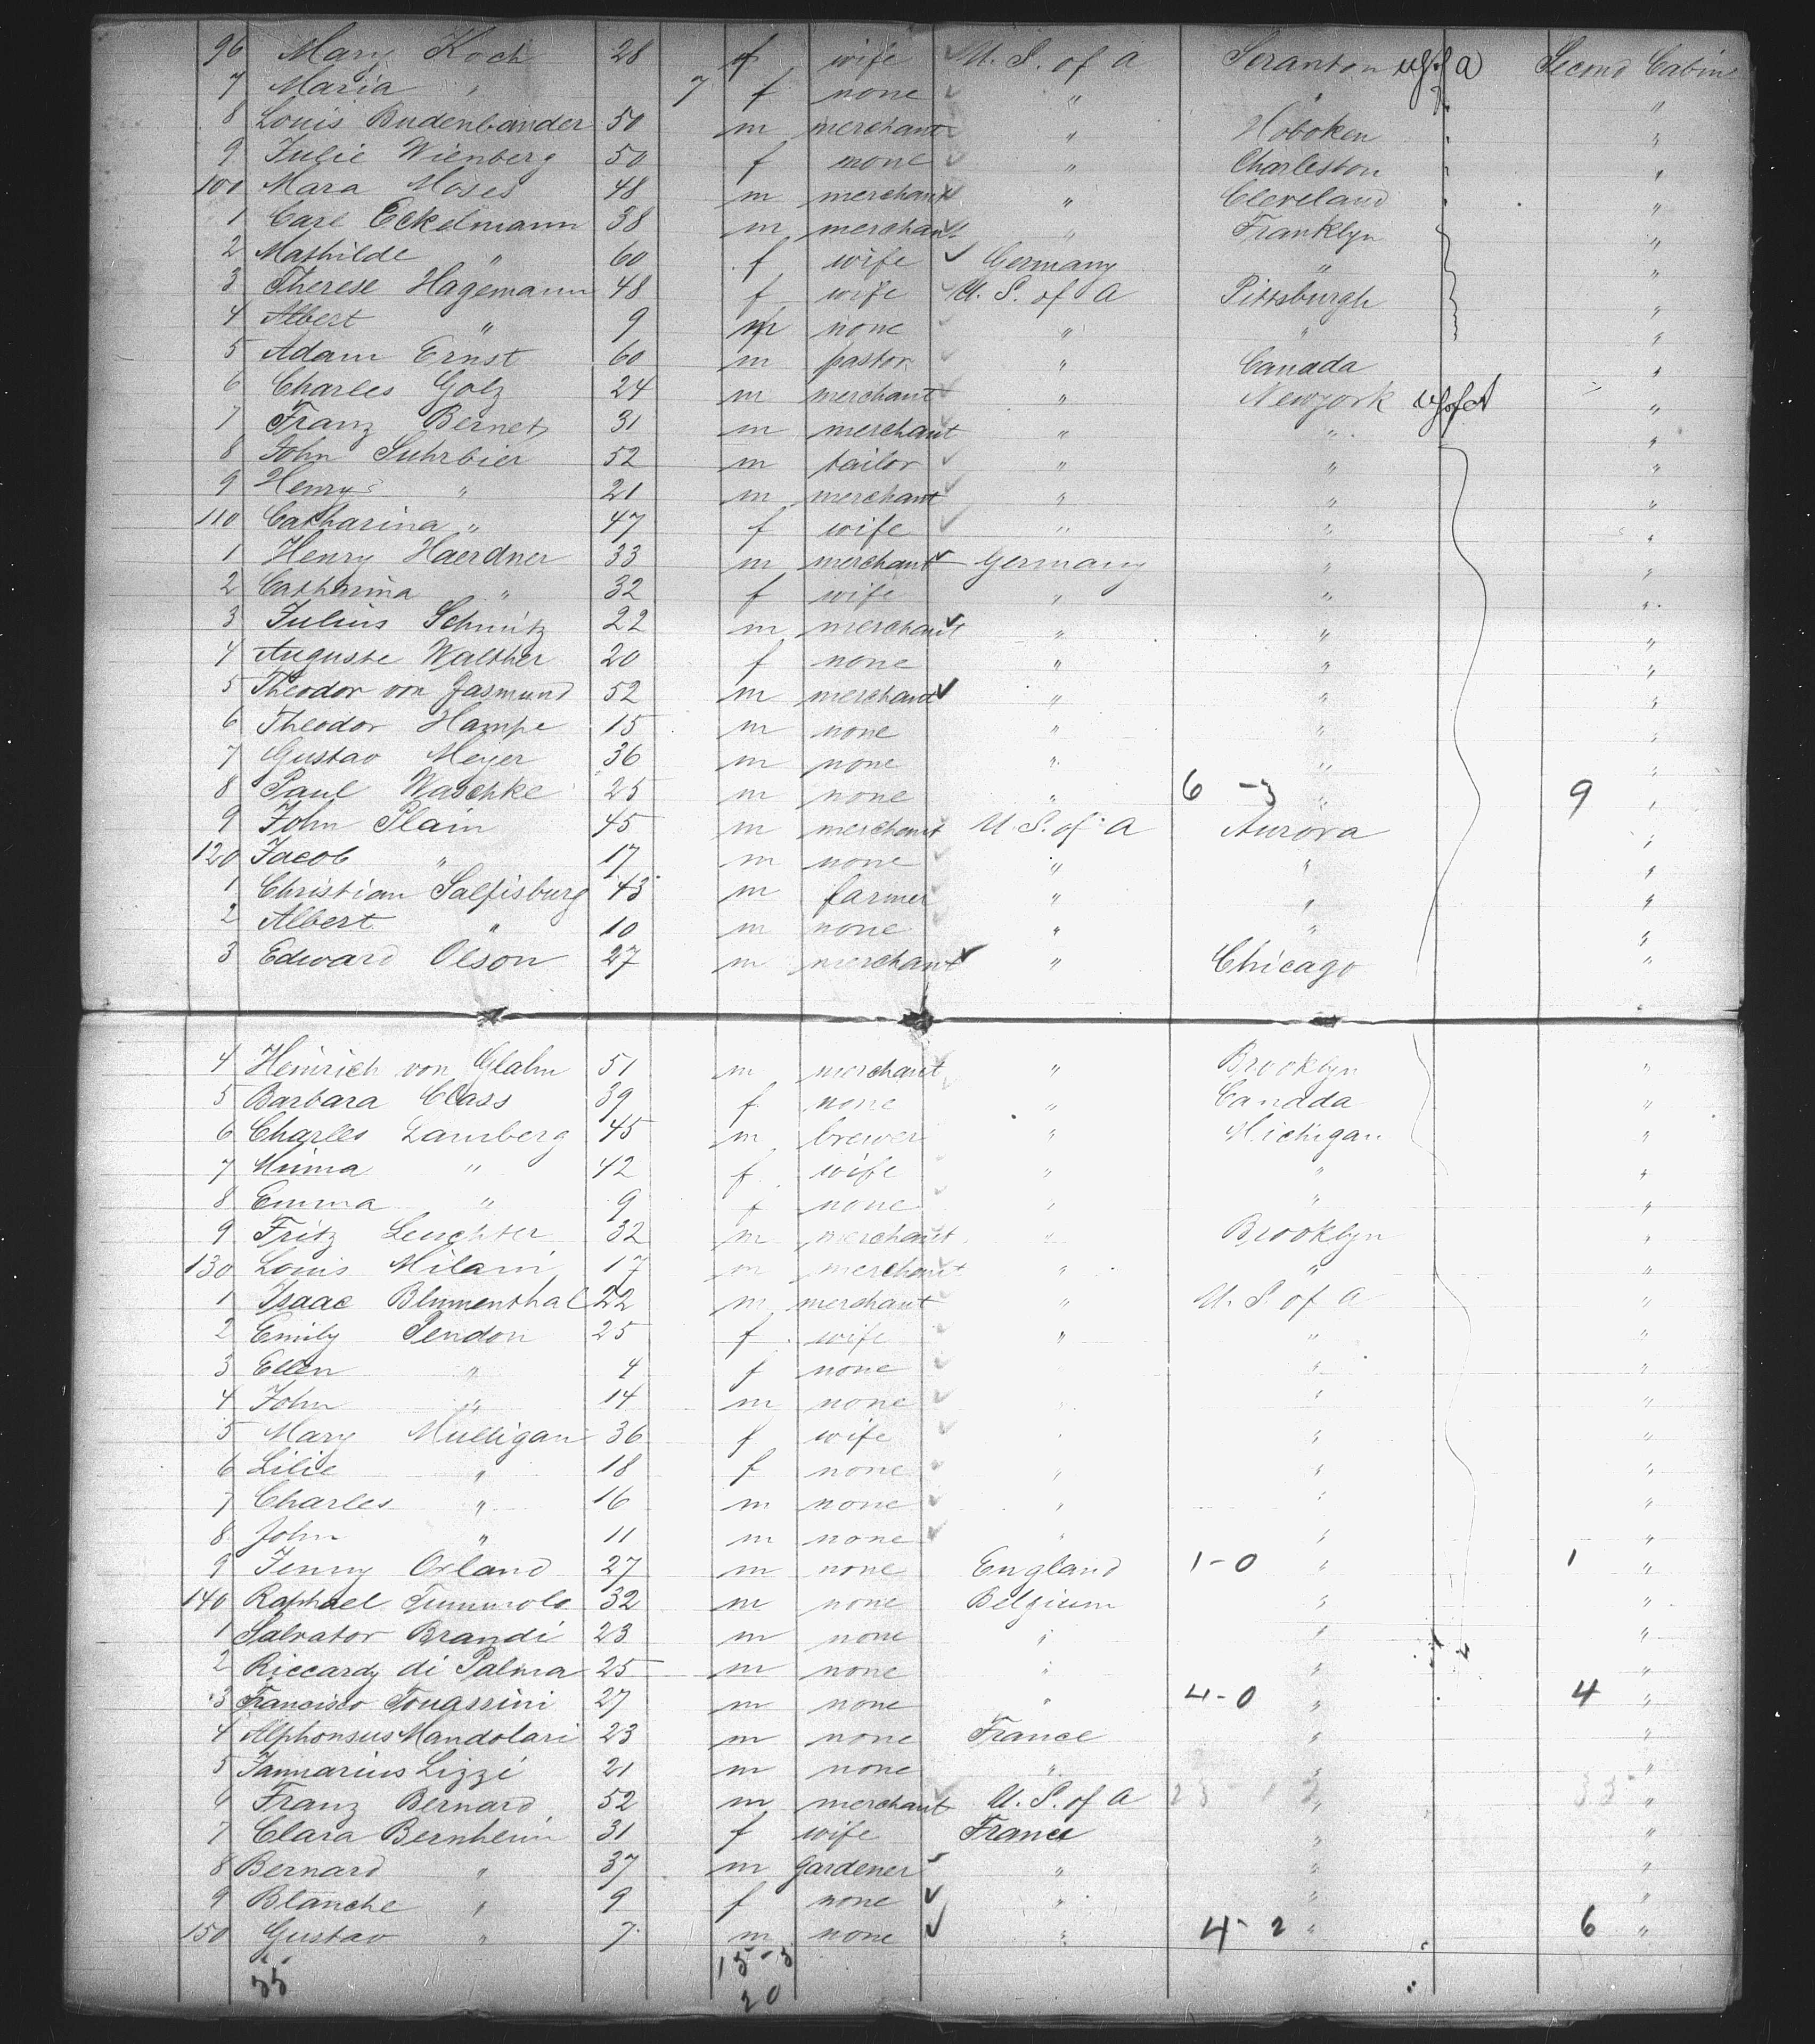 96 Mary Koch 28 f wife U. S. of A Scranton U S of A Second Cabin
7 Maria " 7 f none " " "
8 Louis Budenbänder 50 m merchant " Hoboken "
9 Julie Wienberg 50 f none " Charleston "
100 Mara Moses 48 m merchant " Cleveland "
1 Carl Eckelmann 58 m merchant " Franklyn "
2 Mathilde " 60 f wife Germany " "
3 Therese Hagemann 48 f wife U. S. of A Pittsburgh "
4 Albert " 9 m none " " "
5 Adam Ernst 60 m pastor " Canada "
6 Charles Golz 24 m merchant " Newyork U S of A "
7 Franz Bernet 31 m merchant " " "
8 John Suhrbier 52 m tailor " " "
9 Henry " 21 m merchant " " "
110 Catharina " 47 f wife " " "
1 Henry Haerdner 33 m merchant Germany " "
2 Catharina " 32 f wife " " "
3 Julius Schmitz 22 m merchant " " "
4 Auguste Walther 20 f none " " "
5 Theodor von Jasmund 52 m merchant " " "
6 Theodor Hampe 15 m none " " "
7 Gustav Meyer 36 m none " " "
8 Paul Waschke 25 m none " 6 - 3 " 9 "
9 John Plain 45 m merchant U. S. of A Aurora "
120 Jacob " 17 m none " " "
1 Christian Salfisburg 43 m farmer " " "
2 Albert " 10 m none " " "
3 Edward Olson 27 m merchant " Chicago "
4 Heinrich von Glahn 51 m merchant " Brooklyn "
5 Barbara Class 39 f none " Canada "
6 Charles Lamberg 45 m brewer " Michigan "
7 Minna " 42 f wife " " "
8 Emma " 9 f none " " "
9 Fritz Leuchter 32 m merchant " Brooklyn "
130 Louis Milani 17 m merchant " " "
1 Isaac Blumenthal 22 m merchant " U. S. of A "
2 Emily Pendon 25 f wife " " "
3 Ellen " 4 f none " "
4 John " 14 m none " " "
5 Mary Mulligan 36 f wife " " "
6 Lilie " 18 f none " " "
7 Charles " 16 m none " " "
8 John " 11 m none " " "
9 Jenny Orland 27 m none England 1 - 0 " 1 "
140 Raphael Tummolo 32 m none Belgium " "
1 Salvator Brandi 23 m none " " "
2 Riccardy di Palma 25 m none " " "
3 Francisco Tougassini 27 m none " 4 - 0 " 4 "
4 Alphonsus Mandolari 23 m none France " "
5 Jannarius Lizzi 21 m none " " "
6 Franz Bernard 52 m merchant U. S. of A " "
7 Clara Bernheim 31 f wife France " "
8 Bernard " 37 m Gardener " " "
9 Blanche " 9 f none " " "
150 Gustav " 7 m none " 4 - 2 " 6 "
15 - 5
20